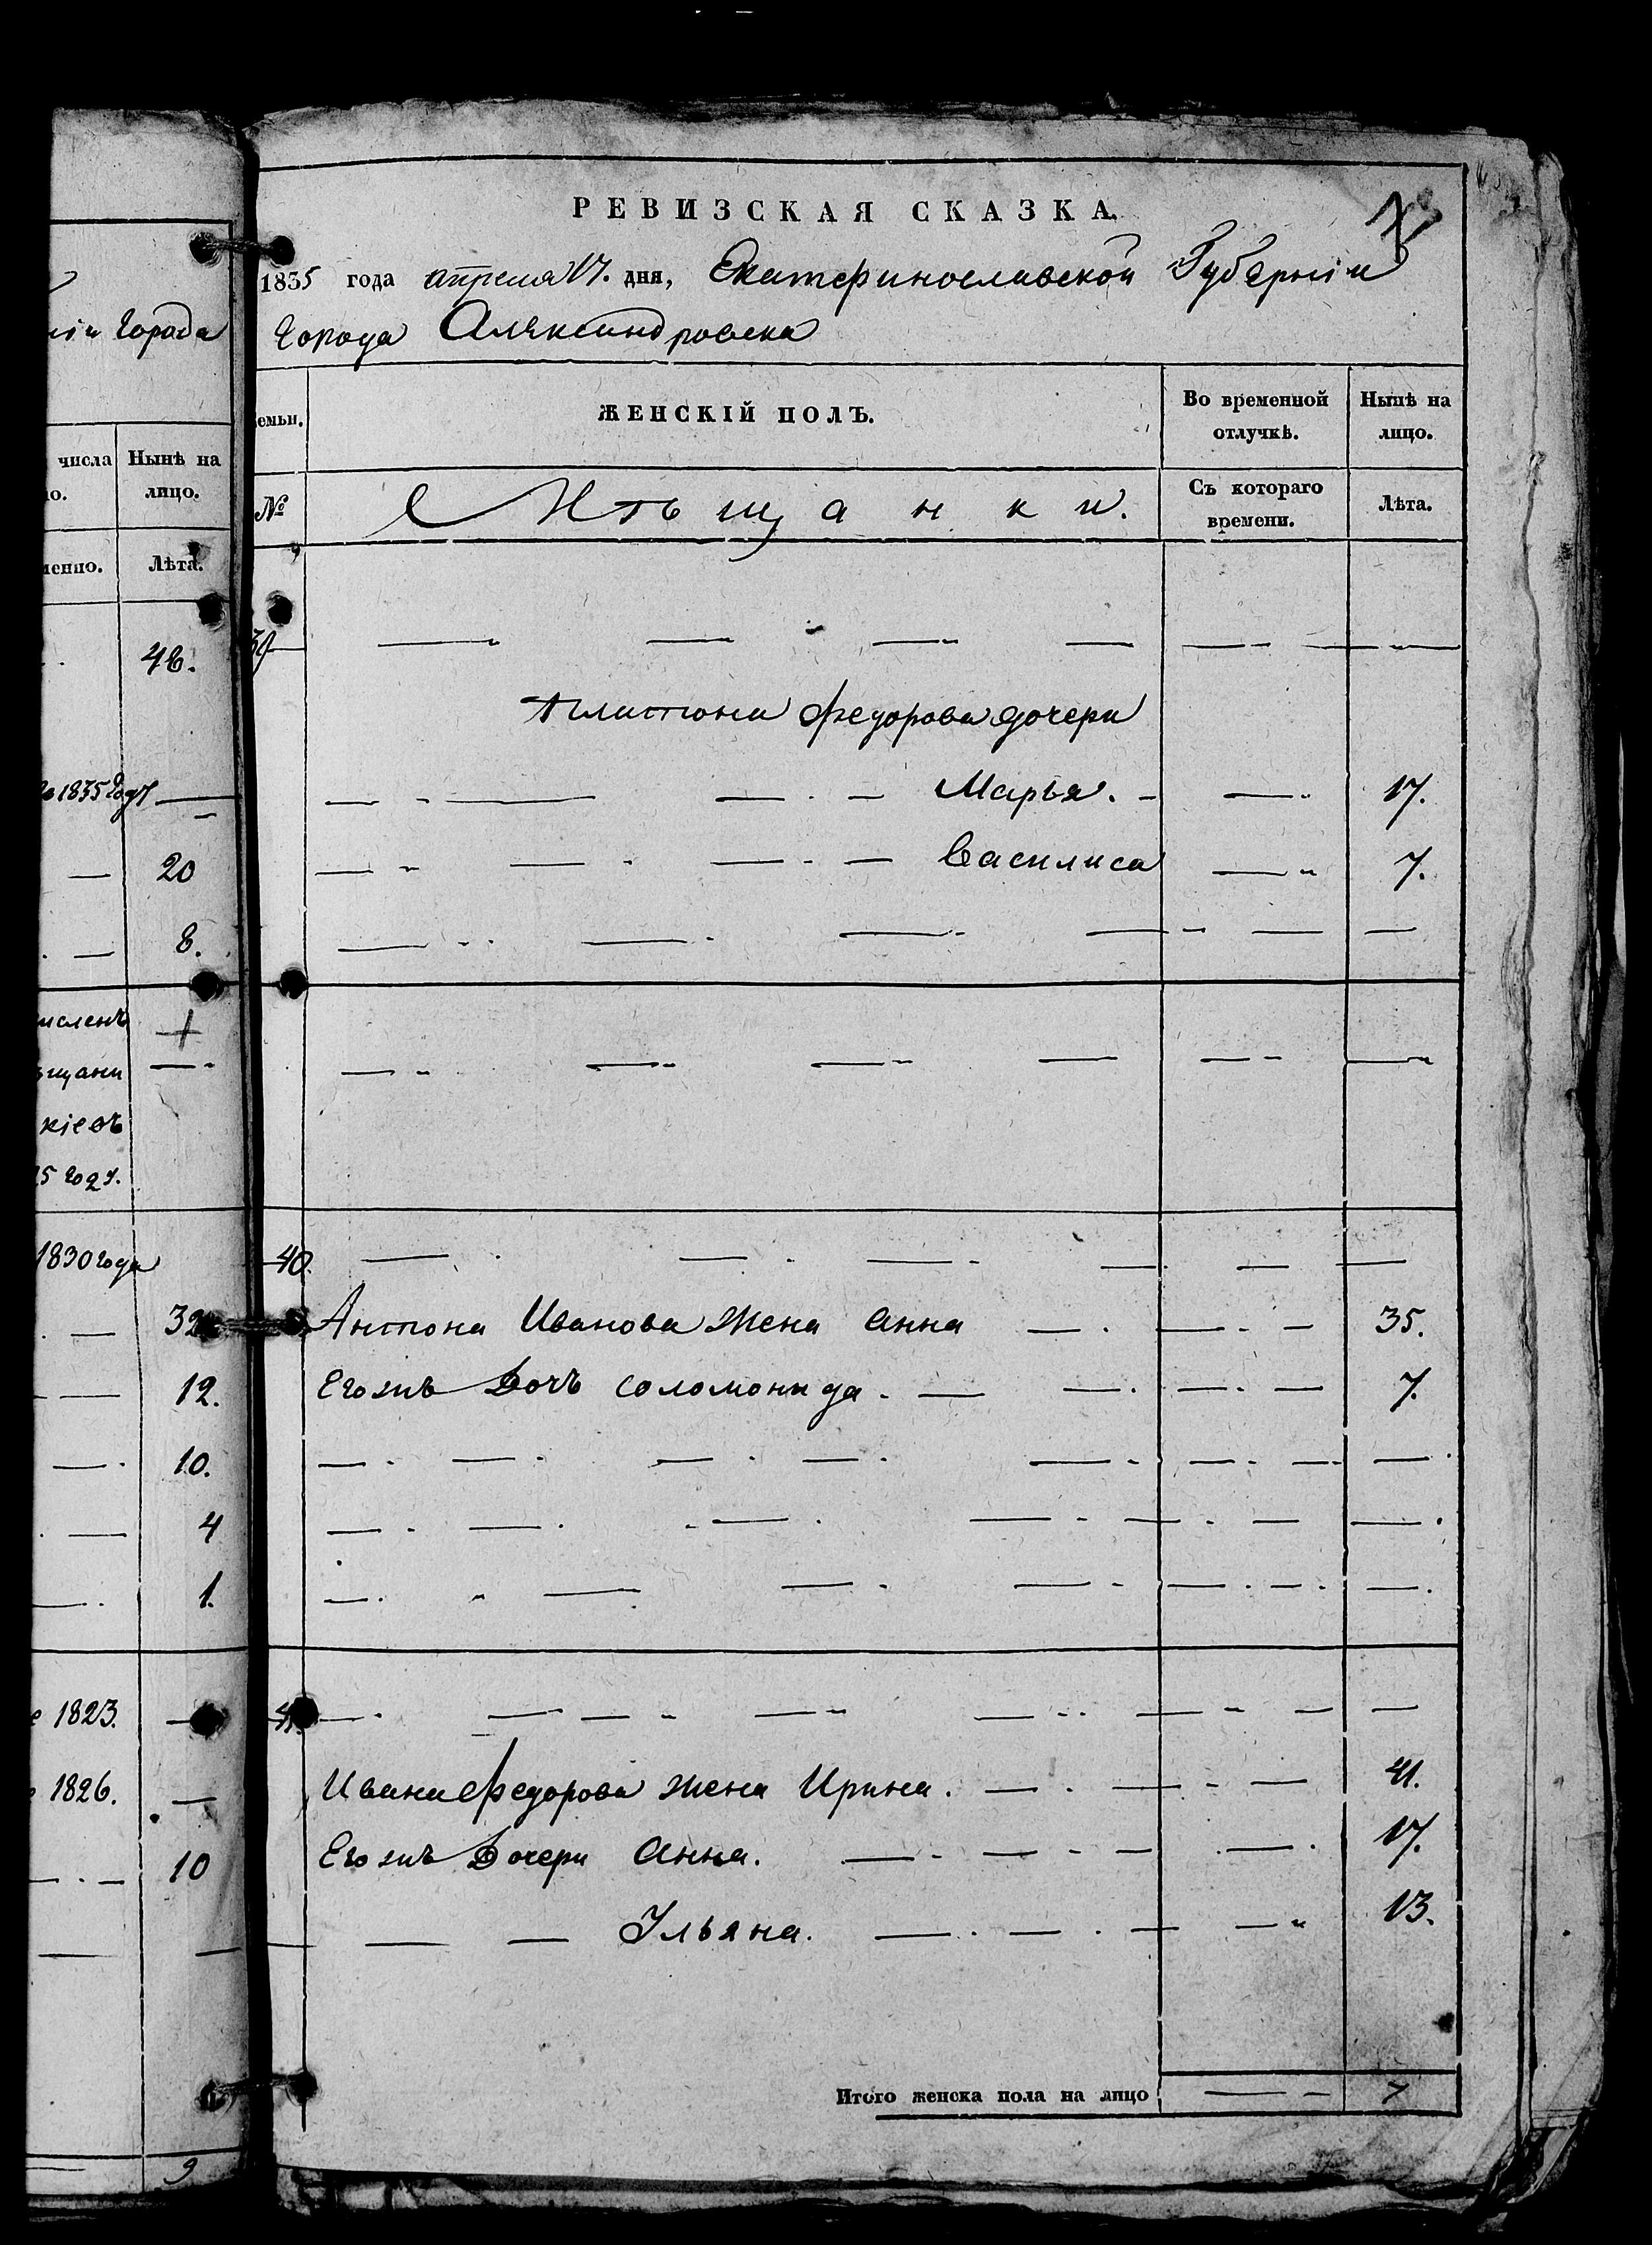 ніи Города
числа
Нынѣ на
ло.
лицо.
менно.
Лѣта.
46.
1835 году
20
8.
исленъ
щани
кіевъ
5 году.
1830 года
32
12.
10.
4
1.
1823.
1826.
10
9
РЕВИЗСКАЯ СКАЗКА.
1835 года апреля 17. дня, Екатеринославской Губерніи
Города Александровска
семьи.
ЖЕНСКІЙ ПОЛЪ.
Во временной
отлучкѣ.
Нынѣ на
лицо.
№
Мѣщанки.
Съ котораго
времени.
Лѣта.
39
Платона Федорова дочери
Марья. 17.
Василиса 7.
40.
Антона Иванова жена Анна 35.
Егожъ Дочь Соломонида. 7.
41.
Ивана Федорова жена Ирина. 41.
Егожъ Дочери Анна. 17.
Ульяна. 13.
Итого женска пола на лицо 7